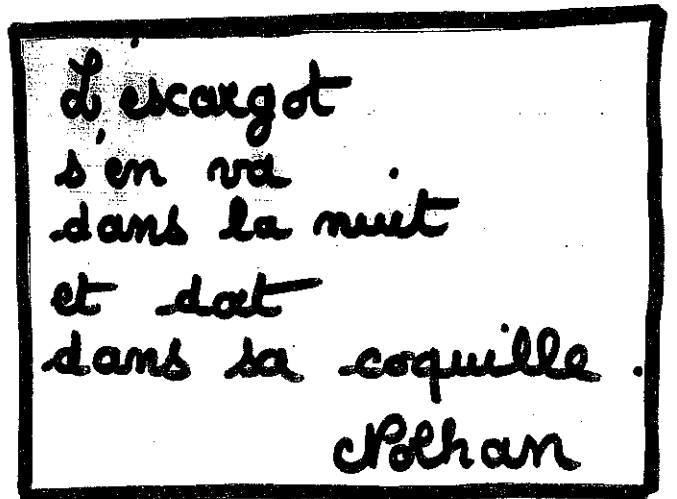 L'escargot
s'en va
dans la nuit
et dort
dans sa coquille.
Nolhan